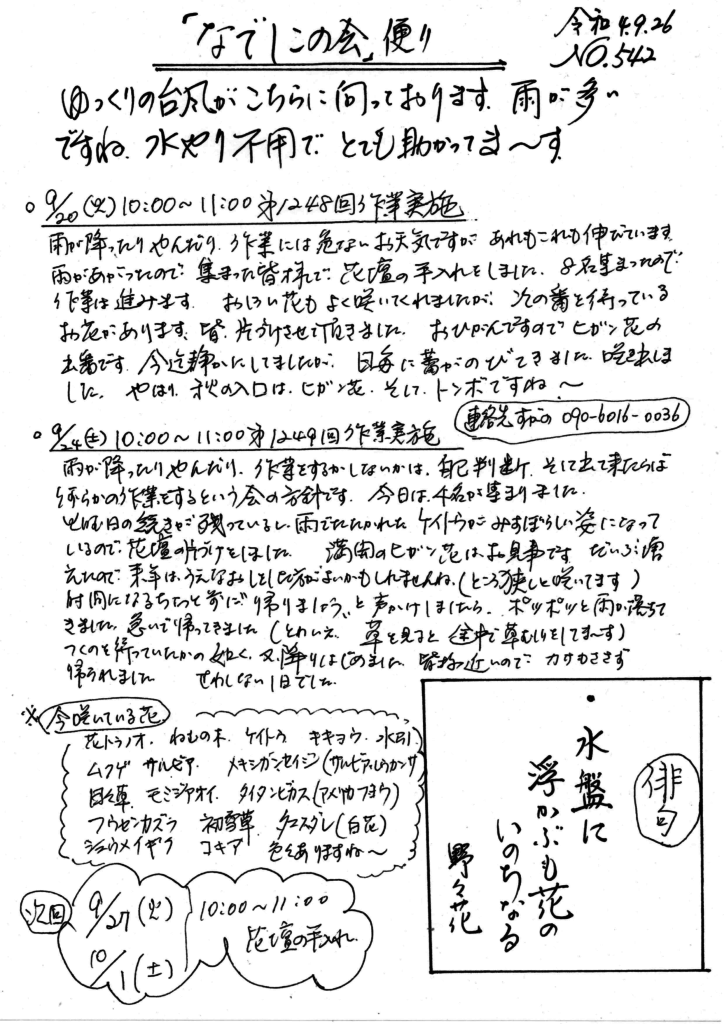 「なでしこの会」便り
令和4.9.26
NO.542
ゆっくりの台風がこちらに向っております。雨が多い
ですね。水やり不用で、とても助かってま〜す。
○ 9/20(火)10:00〜11:00 第1248回作業実施
雨が降ったりやんだり、作業には危ないお天気ですが、あれもこれも伸びています。
雨があがったので、集まった皆様で、花壇の手入れをしました。8名集まったので
作業は進みます。おしろい花もよく咲いてくれましたが、次の番を待っている
お花があります。皆、片づけさせて頂きました。おひがんですのでヒガン花の
出番です。今迄静かにしてましたが、日毎に蕾がのびてきました。咲き出しま
した。やはり、秋の入口は、ヒガン花、そして、トンボですね〜
連絡先 090-6016-0036
○ 9/24(土)10:00〜11:00 第1249回作業実施
雨が降ったりやんだり、作業をするかしないかは、自己判断、そして出て来たらば
何らかの作業をするという会の方針です。今日は、4名が集まりました。
火曜日の続きが残っているし、雨でたたかれたケイトウがみすぼらしい姿になって
いるので、花壇の片づけをしました。満開のヒガン花はお見事です。だいぶ増
えたので、来年は、うえなおしをした方がよいかもしれませんね。(ところ狭しと咲いてます)
時間になるちょっと前に"帰りましょう"と声かけしましたら、ポツポツと雨が落ちて
きました。急いで帰ってきました(とはいえ、草を見ると途中で草むしりをしてま〜す)
つくのを待っていたかの如く、又、降りはじめました。皆様近いので、カサもささず
帰られました。せわしない1日でした。
※今咲いている花
花トラノオ、ねむの木、ケイトウ、キキョウ、水引、
ムクゲ、サルビア、メキシカンセイジ(サルビアレウカンサ
目々草、モミジアオイ、タイタンビカス(アメリカフヨウ)
フウセンカズラ 初雪草、タマスダレ(白花)
シュウメイギク コキア 色々ありますね〜
次回
9/27(火)
10/1(土)
10:00〜11:00
花壇の手入れ
俳句
・水盤に
浮かぶも花の
いのちなる
野々花